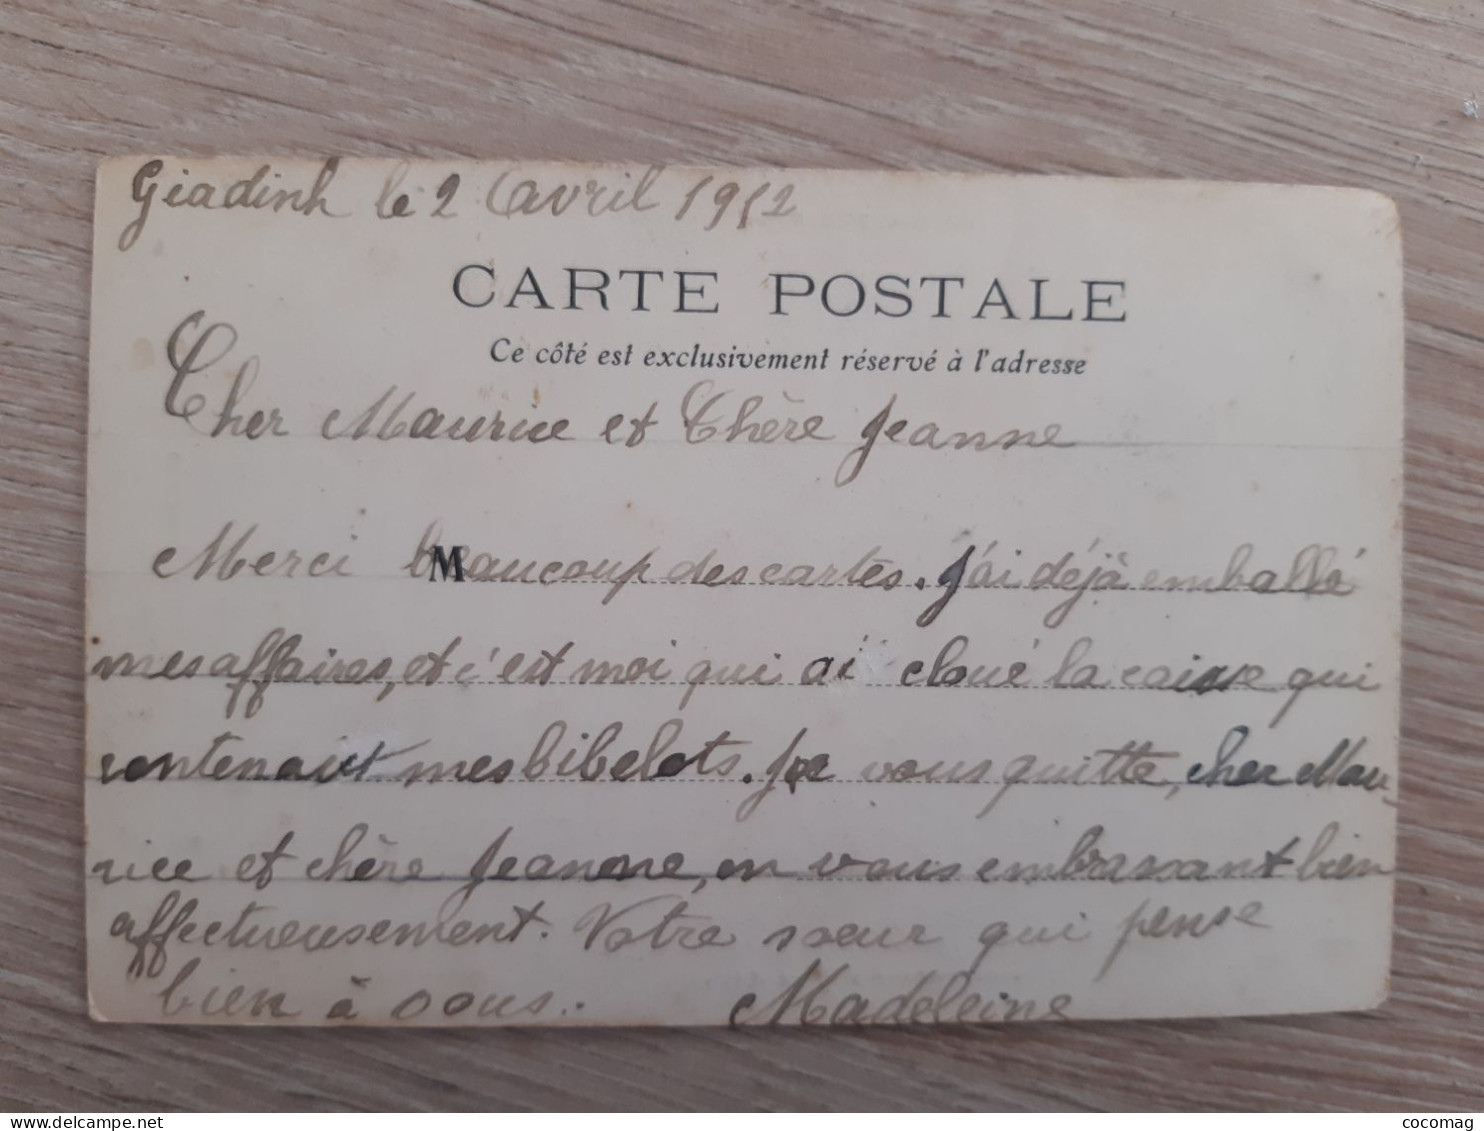 Giadinh le 2 Avril 1912
CARTE POSTALE
Ce côté est exclusivement réservé à l'adresse
Cher Maurice et Chère Jeanne
M
Merci beaucoup des cartes. J'ai déjà emballé
mes affaires, et c'est moi qui ai cloué la caisse qui
contenait mes bibelots. Je vous quitte, cher Mau-
rice et chère Jeanne, en vous embrassant bien
affectueusement. Votre sœur qui pense
bien à vous. Madeleine
cocomag